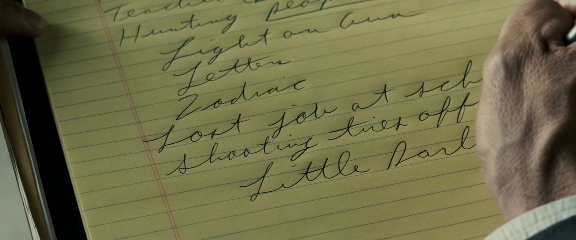 Hunting people
Light on Gun
Letters
Zodiac
Lost job at sch
shooting tires off
Little